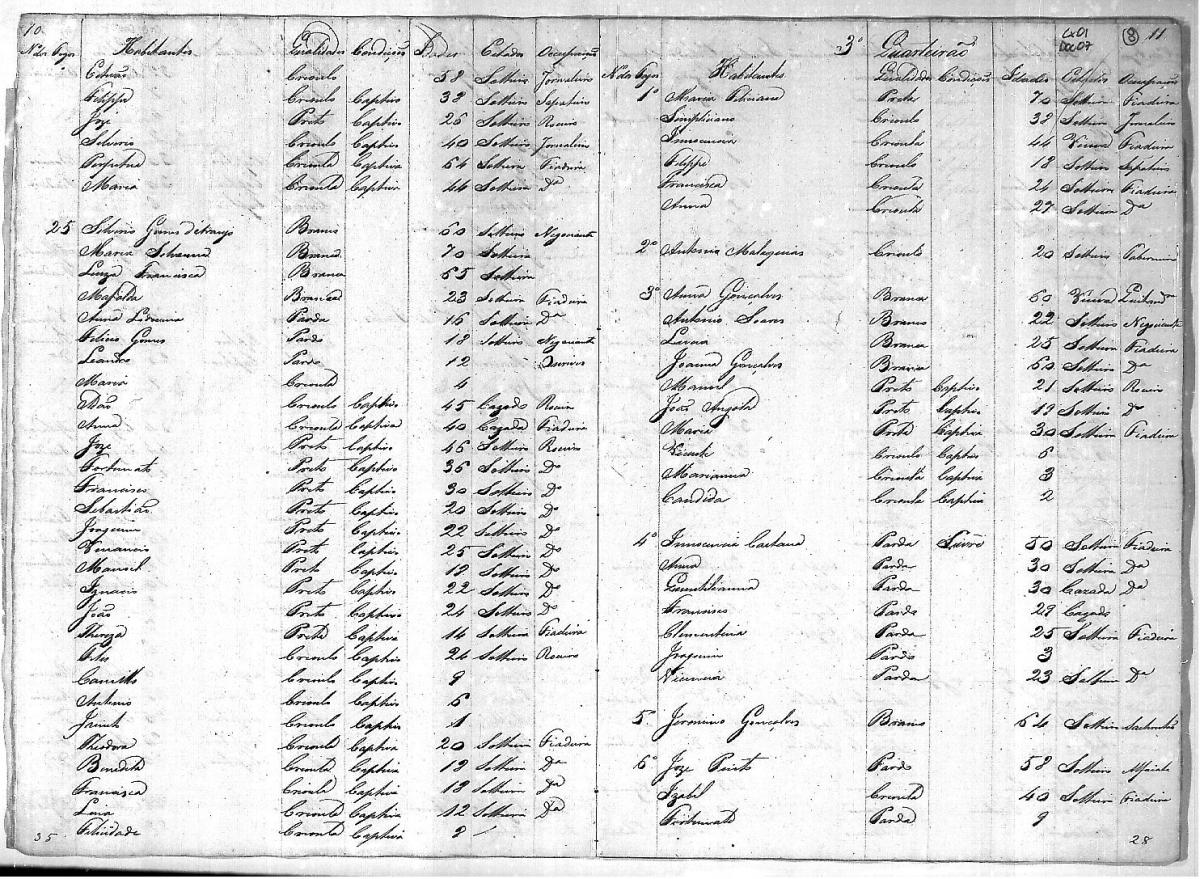 10.
N.º dos Fogos Habitantes Qualidades Condição Idades Estados Occupação
Estevão Crioulo 58 Solteiro Jornaleiro
Filippe Crioulo Captivo 38 Solteiro Sapateiro
Joze Preto Captivo 26 Solteiro Roceiro
Silverio Crioulo Captivo 40 Solteiro Jornaleiro
Perpetua Crioula Captiva 64 Solteira Fiadeira
Maria Crioula Captiva 44 Solteira Dª
25 Silverio Gomes de Araujo Branco 60 Solteiro Negociante
Maria Branca 70 Solteira
Luiza Francisca Branca 65 Solteira
Mafalda Branca 23 Solteira Fiadeira
Anna Parda 16 Solteira Dª
Felicio Gomes Pardo 18 Solteiro Negociante
Leandro Pardo 12 Ourives
Maria Crioula 4
Adão Crioulo Captivo 45 Cazado Roceiro
Anna Crioula Captiva 40 Cazada Fiadeira
Joze Preto Captivo 46 Solteiro Roceiro
Fortunato Preto Captivo 36 Solteiro Dº
Francisco Preto Captivo 30 Solteiro Dº
Sebastião Preto Captivo 20 Solteiro Dº
Joaquim Preto Captivo 22 Solteiro Dº
Venancio Preto Captivo 25 Solteiro Dº
Manoel Preto Captivo 18 Solteiro Dº
Ignacio Preto Captivo 22 Solteiro Dº
João Preto Captivo 24 Solteiro Dº
Thereza Preta Captiva 14 Solteira Fiadeira
Crioulo Captivo 24 Solteiro Roceiro
Camillo Crioulo Captivo 9
Antonio Crioulo Captivo 6
Crioulo Captivo 1
Theodora Crioula Captiva 20 Solteira Fiadeira
Benedita Crioula Captiva 18 Solteira Dª
Francisca Crioula Captiva 18 Solteira Dª
Crioula Captiva 12 Solteira Dª
Felicidade Crioula Captiva 2
35
Cx01
Doc07
8 11
3º Quarteirão
N.º dos Fogos Habitantes Qualidades Condição Idades Estados Occupação
1º Maria Feliciana Preta 70 Solteira Fiadeira
Simpliciano Crioulo 38 Solteiro Jornaleiro
Innocencia Crioula 44 Viuva Fiadeira
Filippe Crioulo 18 Solteiro Sapateiro
Francisca Crioula 24 Solteira Fiadeira
Anna Crioula 27 Solteira Dª
2º Antonio Malaquias Crioulo 20 Solteiro
3º Anna Gonçalves Branca 60 Viuva
Antonio Soares Branco 22 Solteiro Negociante
Branca 25 Solteira Fiadeira
Joanna Gonçalves Branca 60 Solteira Dª
Manoel Preto Captivo 21 Solteiro Roceiro
João Angola Preto Captivo 19 Solteiro Dº
Maria Preta Captiva 30 Solteira Fiadeira
Vicente Crioulo Captivo 6
Marianna Crioula Captiva 3
Candida Crioula Captiva 2
4º Innocencia Caetana Parda Livre 50 Solteira Fiadeira
Anna Parda 30 Solteira Dª
Quintilianna Parda 30 Cazada Dª
Francisco Pardo 29 Cazado
Clementina Parda 25 Solteira Fiadeira
Joaquim Pardo 3
Parda 23 Solteira Dª
5. Jeronimo Gonçalves Branco 64 Solteiro
6º Joze Pinto Pardo 58 Solteiro Alfaiate
Izabel Crioula 40 Solteira Fiadeira
Fortunata Parda 9
28